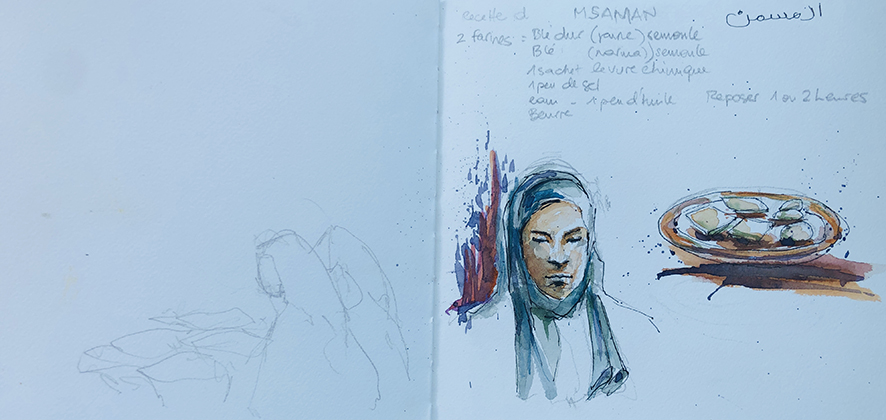 recette d MSAMAN المسمن
2 farines = Blé dur (jaune) semoule
Blé (normal) semoule
1 sachet levure chimique
1 peu de sel
eau - 1 peu d'huile Reposer 1 ou 2 heures
Beurre